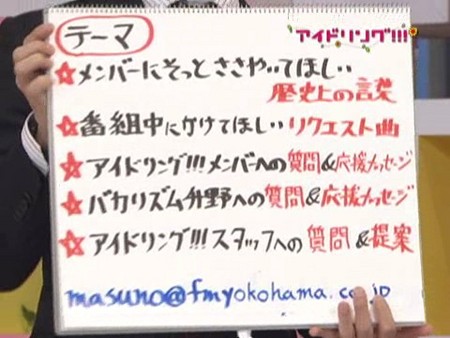 テーマ
アイドリング!!!
☆メンバーにそっとささやいてほしい
歴史上の言葉
☆番組中にかけてほしいリクエスト曲
☆アイドリング!!!メンバーへの質問&応援メッセージ
☆バカリズム升野への質問&応援メッセージ
☆アイドリング!!!スタッフへの質問&提案
masuno@fmyokohama.co.jp